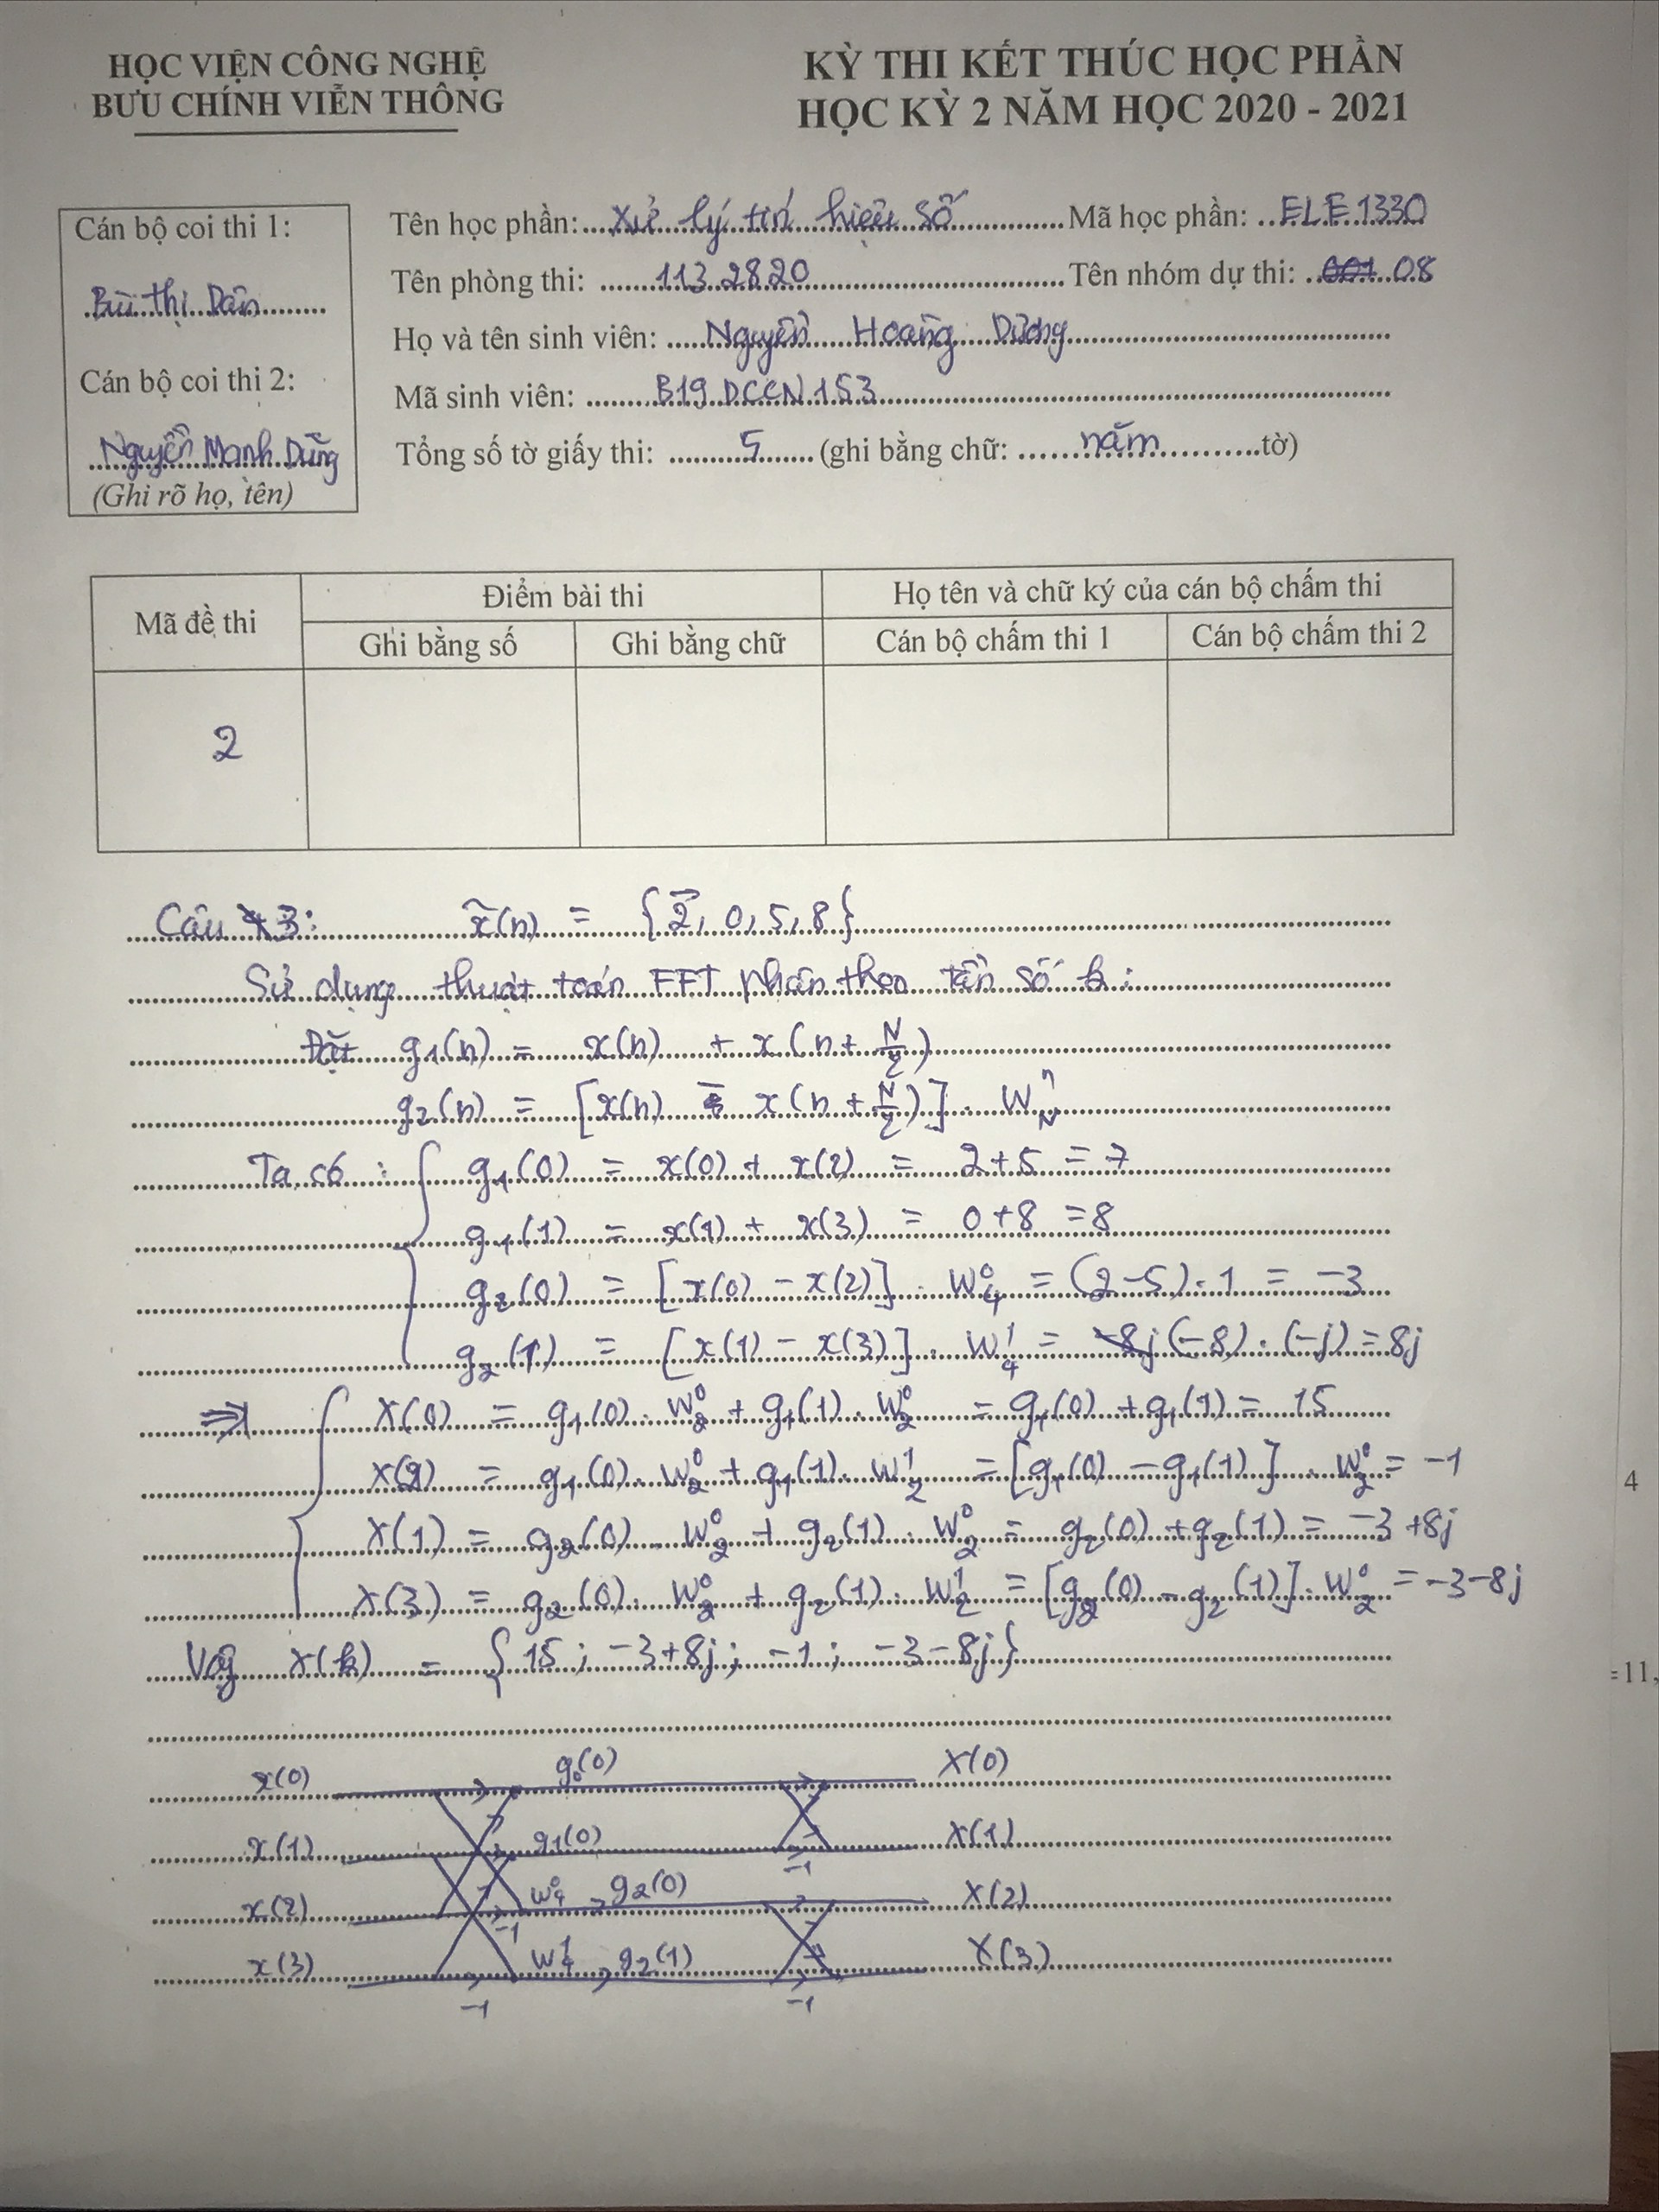 HỌC VIỆN CÔNG NGHỆ
BƯU CHÍNH VIỄN THÔNG
KỲ THI KẾT THÚC HỌC PHẦN
HỌC KỲ 2 NĂM HỌC 2020 - 2021
Cán bộ coi thi 1:
Bùi Thị Dân
Cán bộ coi thi 2:
Nguyễn Mạnh Dũng
(Ghi rõ họ, tên)
Tên học phần: Xử lý tín hiệu số Mã học phần: ELE1330
Tên phòng thi: 113 2820 Tên nhóm dự thi: 08
Họ và tên sinh viên: Nguyễn Hoàng Dương
Mã sinh viên: B19DCCN153
Tổng số tờ giấy thi: 5 (ghi bằng chữ: năm tờ)
Mã đề thi
Điểm bài thi
Họ tên và chữ ký của cán bộ chấm thi
Ghi bằng số
Ghi bằng chữ
Cán bộ chấm thi 1
Cán bộ chấm thi 2
2
Câu 3: x̃(n) = {2⃗, 0, 5, 8}
Sử dụng thuật toán FFT phân theo tần số k:
Đặt g1(n) = x(n) + x(n + N/2)
g2(n) = [x(n) - x(n + N/2)] . W_N^n
Ta có: { g1(0) = x(0) + x(2) = 2+5 = 7
g1(1) = x(1) + x(3) = 0+8 = 8
g2(0) = [x(0) - x(2)] . W_4^0 = (2-5).1 = -3
g2(1) = [x(1) - x(3)] . W_4^1 = (-8).(-j) = 8j
=> { X(0) = g1(0). W_2^0 + g1(1). W_2^0 = g1(0) + g1(1) = 15
X(2) = g1(0). W_2^0 + g1(1). W_2^1 = [g1(0) - g1(1)] . W_2^0 = -1
X(1) = g2(0). W_2^0 + g2(1). W_2^0 = g2(0) + g2(1) = -3+8j
X(3) = g2(0). W_2^0 + g2(1). W_2^1 = [g2(0) - g2(1)]. W_2^0 = -3-8j
Vậy X(k) = {15; -3+8j; -1; -3-8j}
x(0) g0(0) X(0)
x(1) g1(0) X(1)
-1
x(2) W_4^0 g2(0) X(2)
-1
x(3) W_4^1 g2(1) X(3)
-1 -1
4
=11,